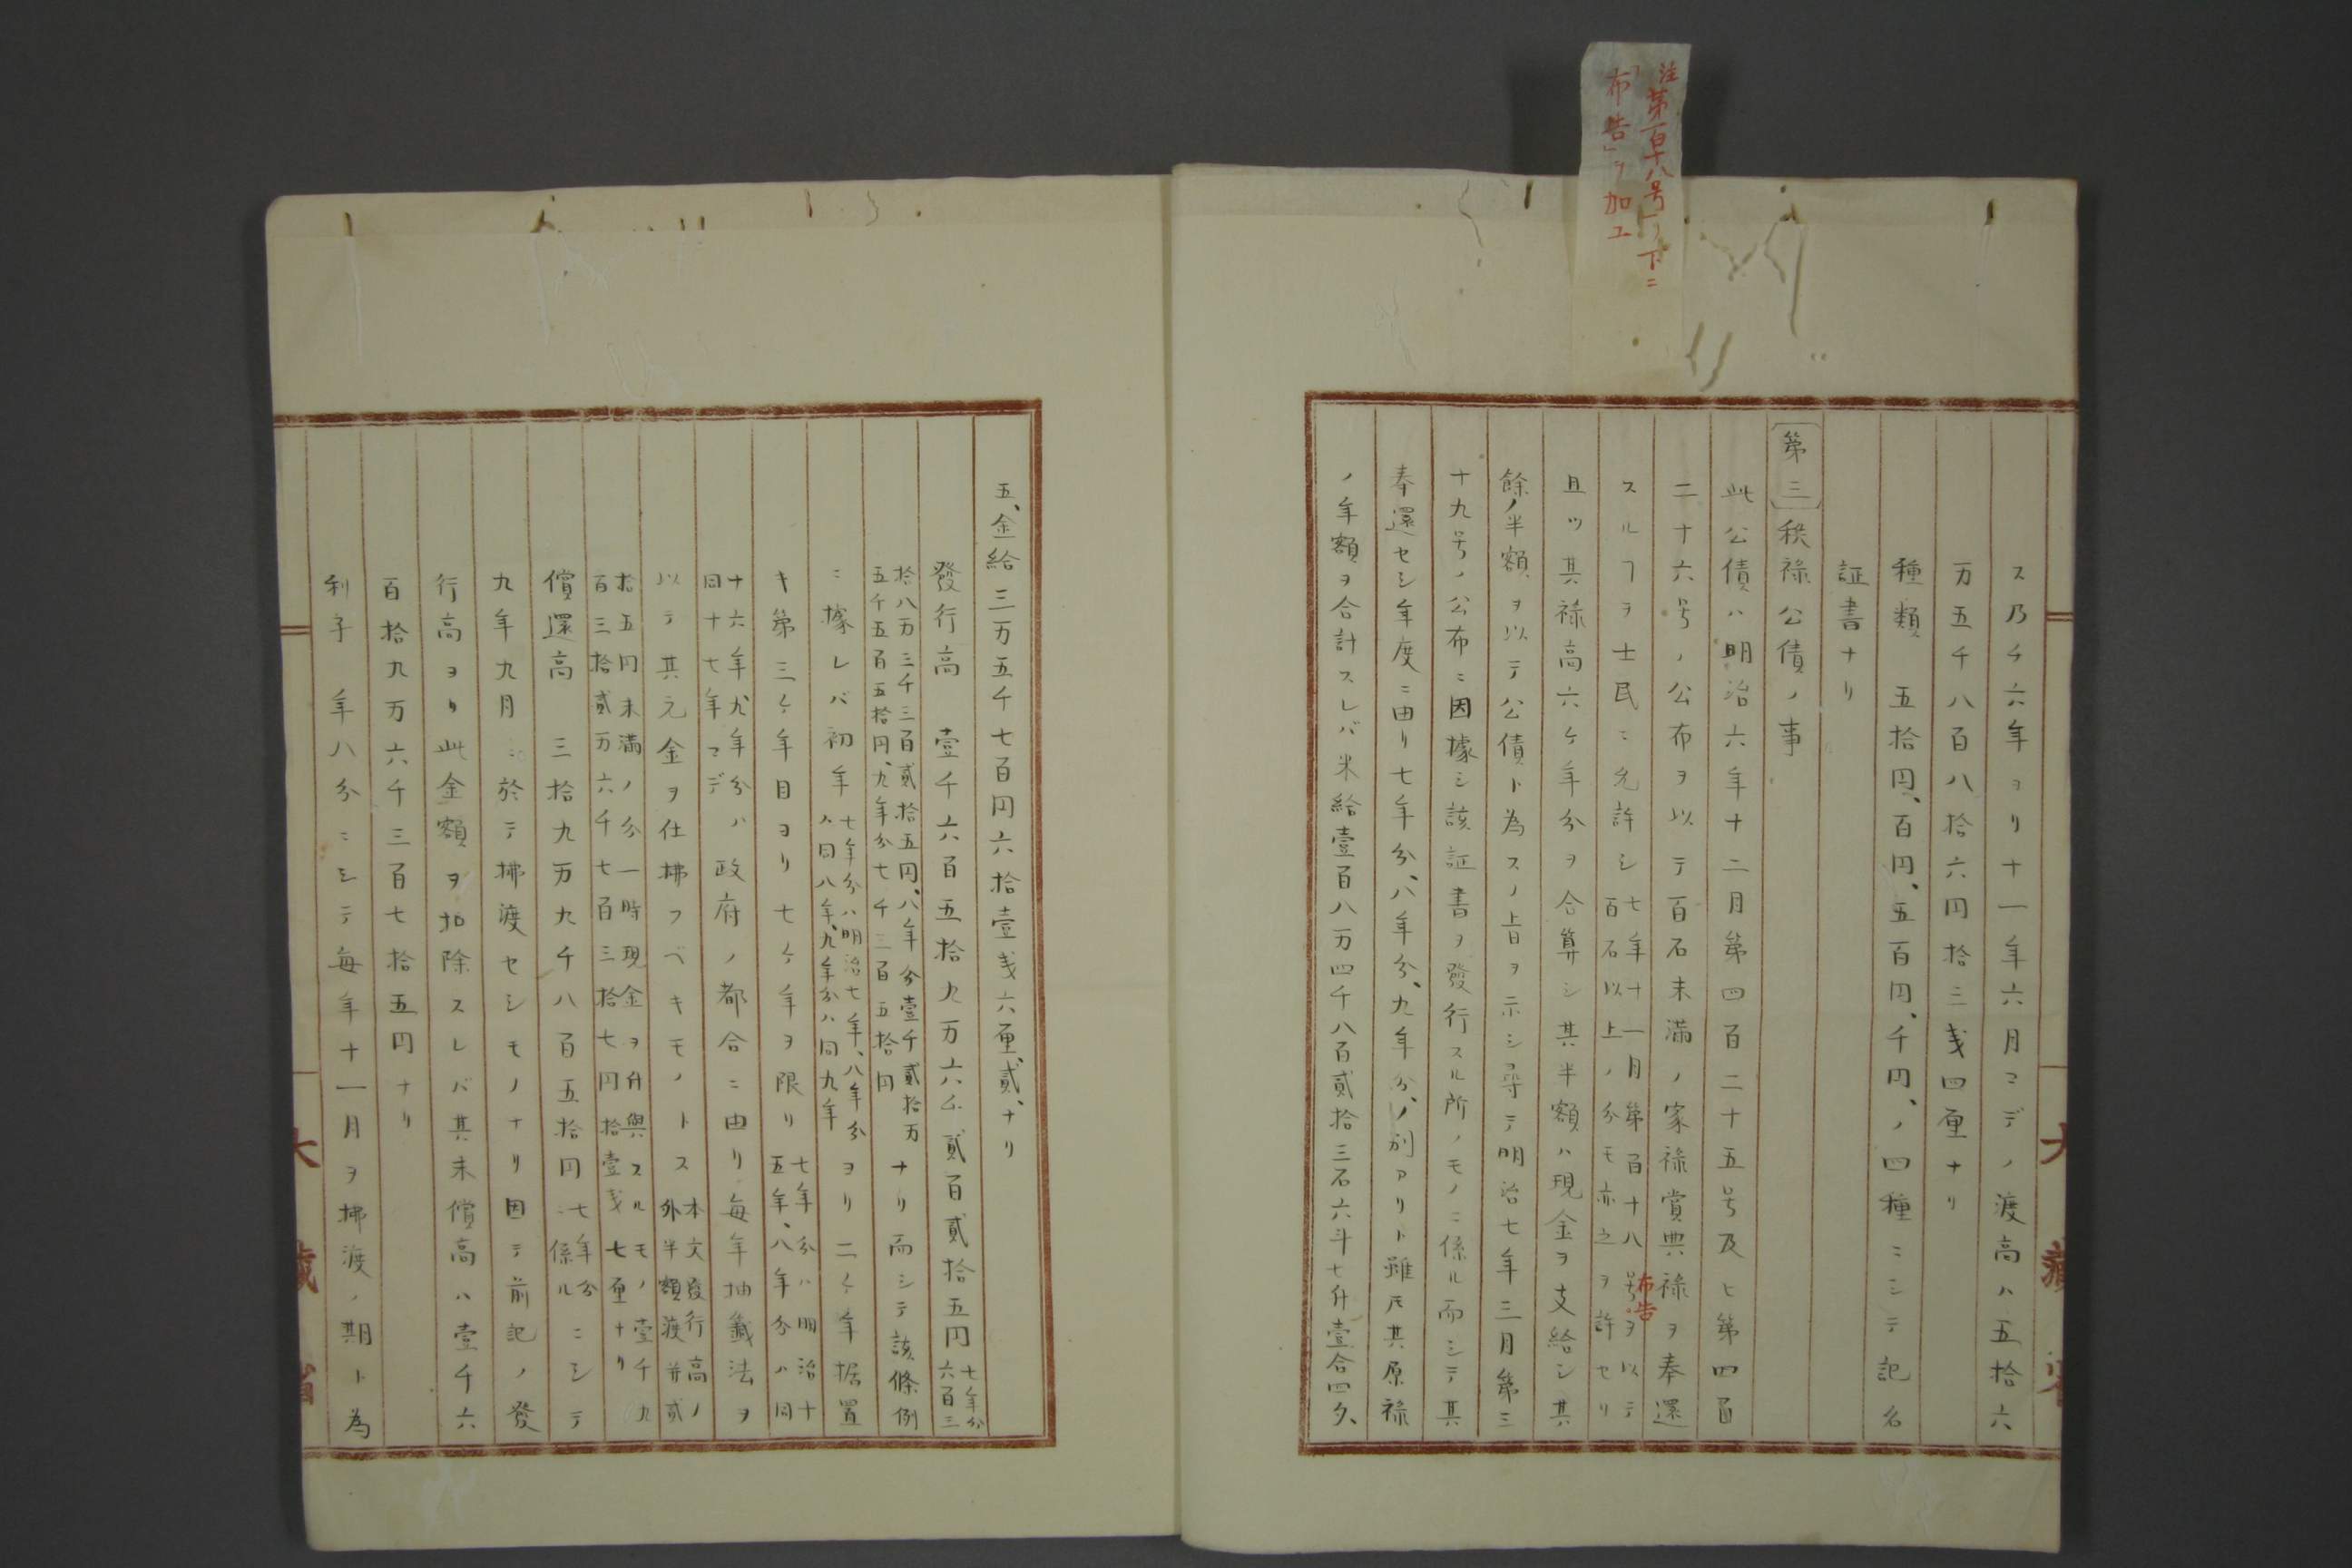 注「第百十八号」ノ下ニ
「布告」ヲ加エ
ス乃チ六年ヨリ十一年六月マデノ渡高ハ五拾六
万五千八百八拾六円拾三銭四厘ナリ
種類　五拾円、百円、五百円、千円、ノ四種ニシテ記名
証書ナリ
第三　秩禄公債ノ事
此公債ハ明治六年十二月第四百二十五号及ヒ第四百
二十六号ノ公布ヲ以テ百石未満ノ家禄賞典禄ヲ奉還
スルヿヲ士民ニ允許シ七年十一月第百十八号布告ヲ以テ
百石以上ノ分モ亦之ヲ許セリ
且ツ其禄高六ケ年分ヲ合算シ其半額ハ現金ヲ支給シ其
餘ノ半額ヲ以テ公債ト為スノ旨ヲ示シ尋テ明治七年三月第三
十九号ノ公布ニ因據シ該証書ヲ発行スル所ノモノニ係ル而シテ其
奉還セシ年度ニ由リ七年分、八年分、九年分、ノ別アリト雖𪜈其原禄
ノ年額ヲ合計スレバ米給壹百八万四千八百貳拾三石六斗七升壹合四夕、
五、金給三万五千七百円六拾壹銭六厘貳、ナリ
發行高　壹千六百五拾九万六千貳百貳拾五円七年分
六百三
拾八万三千三百貳拾五円、八年分壹千貳拾万
五千五百五拾円、九年分七千三百五拾円ナリ而シテ該條例
ニ據レバ初年七年分ハ明治七年、八年分
ハ同八年、九年分ハ同九年ヨリ二ケ年据置
キ第三ケ年目ヨリ七ケ年ヲ限リ七年分ハ明治十
五年、八年分ハ同
十六年九年分ハ
同十七年マデ政府ノ都合ニ由リ毎年抽籤法ヲ
以テ其元金ヲ仕拂フベキモノトス本文發行高ノ
外半額渡并貳
拾五円未満ノ分一時現金ヲ付與スルモノ壹千九
百三拾貳万六千七百三拾七円拾壹銭七厘ナリ
償還高　三拾九万九千八百五拾円七年分
ニ係ルニシテ
九年九月ニ於テ拂渡セシモノナリ因テ前記ノ發
行高ヨリ此金額ヲ扣除スレバ其未償高ハ壹千六
百拾九万六千三百七拾五円ナリ
利子　年八分ニシテ毎年十一月ヲ拂渡ノ期ト為
大藏省
大藏省